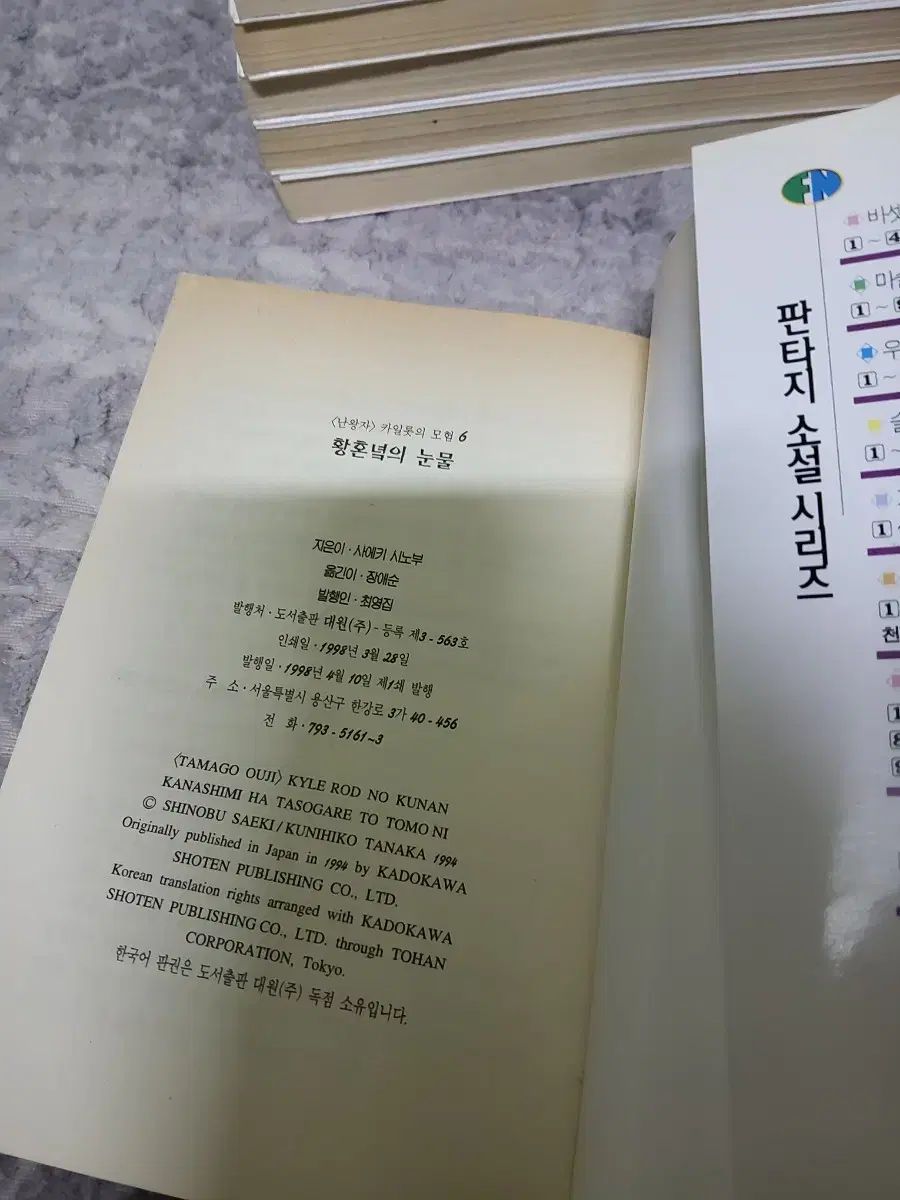 〈난왕자〉 카일롯의 모험 6
황혼녘의 눈물
지은이 · 사에키 시노부
옮긴이 · 장애순
발행인 · 최영집
발행처 · 도서출판 대원(주) - 등록 제3-563호
인쇄일 · 1998년 3월 28일
발행일 · 1998년 4월 10일 제1쇄 발행
주 소 · 서울특별시 용산구 한강로 3가 40-456
전 화 · 793-5161~3
〈TAMAGO OUJI〉 KYLE ROD NO KUNAN
KANASHIMI HA TASOGARE TO TOMO NI
© SHINOBU SAEKI / KUNIHIKO TANAKA 1994
Originally published in Japan in 1994 by KADOKAWA
SHOTEN PUBLISHING CO., LTD.
Korean translation rights arranged with KADOKAWA
SHOTEN PUBLISHING CO., LTD. through TOHAN
CORPORATION, Tokyo.
한국어 판권은 도서출판 대원(주) 독점 소유입니다.
FN
판타지 소설 시리즈
1 ~ 4
1 ~
1 ~
1 ~
1
1
천
1
8